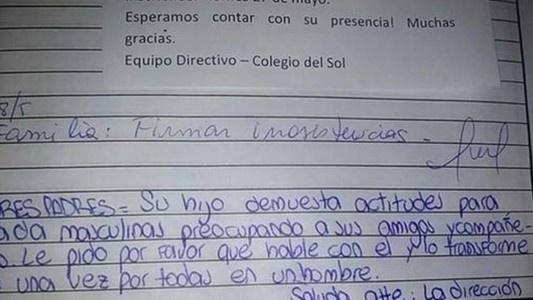 Esperamos contar con su presencia! Muchas
gracias.
Equipo Directivo – Colegio del Sol
8/5
Familia: Firmar inasistencias.
RES PADRES= Su hijo demuesta actitudes para
ada masculinas preocupando a sus amigos y compañe-
o. Le pido por favor que hable con el y lo transforme
una vez por todas en un hombre.
Saluda atte: La dirección